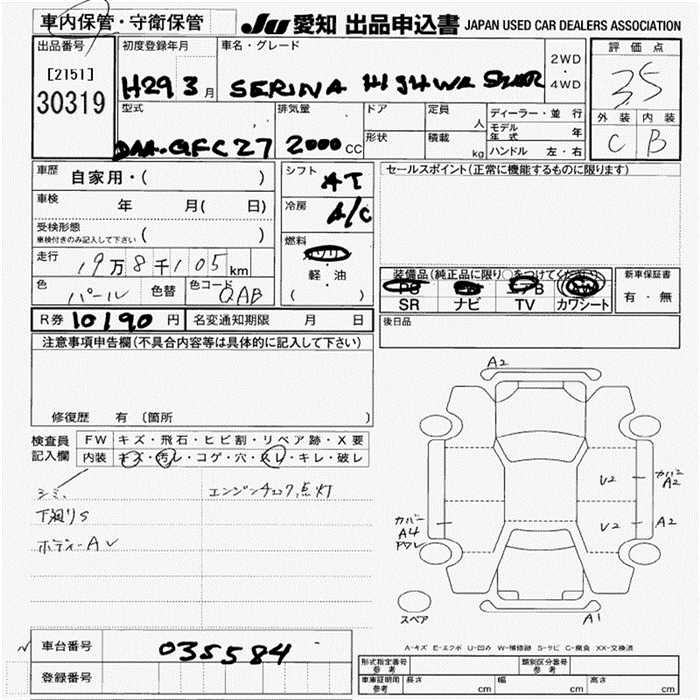 車内保管・守衛保管
JU 愛知 出品申込書 JAPAN USED CAR DEALERS ASSOCIATION
出品番号
[2151]
30319
初度登録年月
H29 3月
車名・グレード
SERINA HIGHWA STAR
2WD
・
4WD
評価点
3.5
外装 内装
C B
型式
DAA-GFC27
排気量
2000 CC
ドア
形状
定員
人
積載
kg
ディーラー・並行
モデル年式 年
ハンドル 左・右
車歴 自家用・( )
車検 年 月( 日)
受検形態
車検付きのみ記入して下さい ( )
走行 19万8千105km
色 パール 色替 色コード QAB
シフト AT
冷房 A/C
燃料
ガソリン
軽・油
( )
セールスポイント(正常に機能するものに限ります)
装備品(純正品に限り○をつけてください)
PS PW エアB AW
SR ナビ TV カワシート
新車保証書
有・無
R券 10190 円 名変通知期限 月 日
後日品
注意事項申告欄(不具合内容等は具体的に記入して下さい)
修復歴 有 (箇所 )
検査員
記入欄
FW キズ・飛石・ヒビ割・リペア跡・X要
内装 キズ・汚レ・コゲ・穴・スレ・キレ・破レ
シミ、 エンジンチェック点灯
下廻りS
ボディーA
A2
U2
カバー
A2
U2
A2
カバー
A4
ワレ
A1
スペア
A-キズ E-エクボ U-凹み W-補修跡 S-サビ C-腐食 XX-交換済
車台番号 035584
登録番号
型式指定番号
参考
類別区分番号
参考
車庫証明用
参考
長さ cm 幅 cm 高さ cm